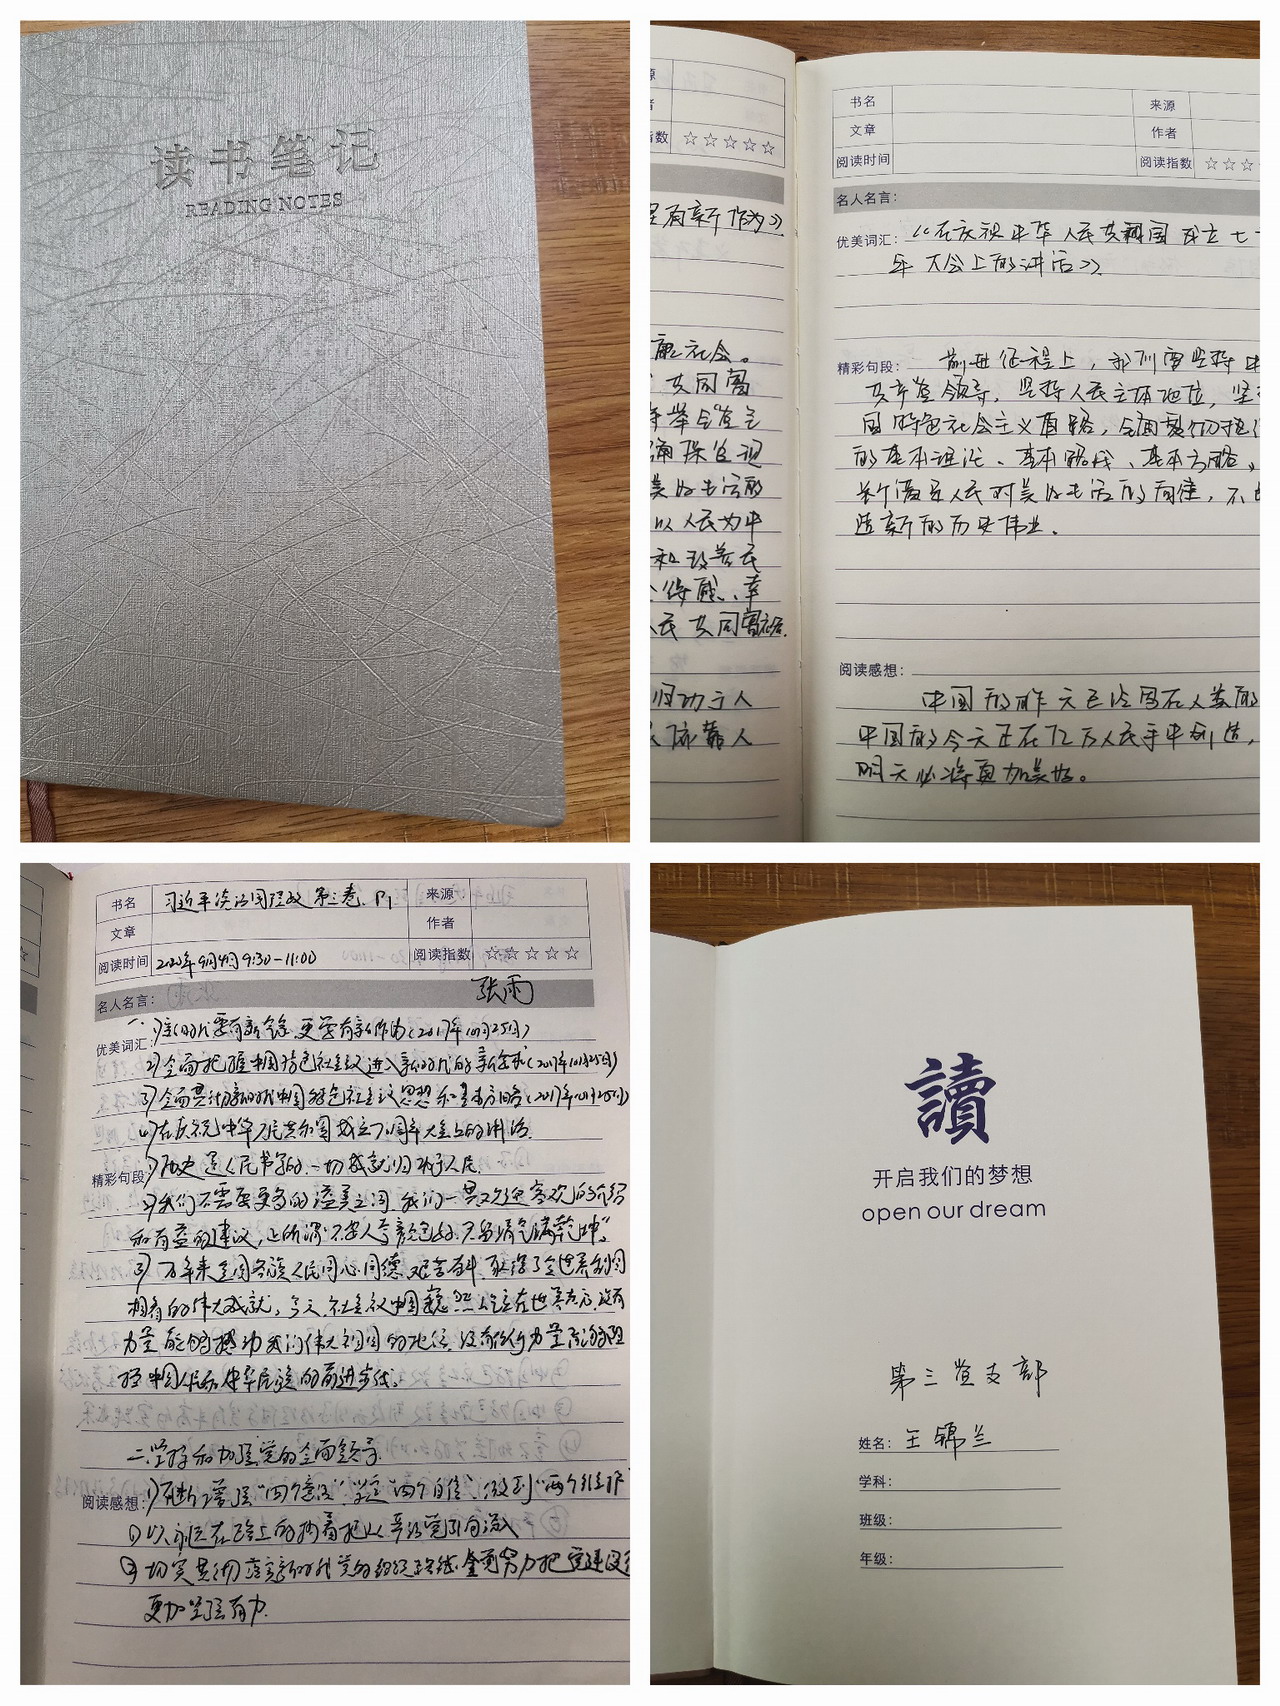 读书笔记
READING NOTES
指数 ☆☆☆☆☆
更有新作为》
社会。
共同富
美好生活的
以人民为中
和改善民
人民共同富裕
归功于人
依靠人
书名 来源
文章 作者
阅读时间 阅读指数 ☆☆☆
名人名言：
优美词汇：《在庆祝中华人民共和国成立七十
年大会上的讲话》
精彩句段： 前进征程上，我们要坚持中
共产党领导，坚持人民主体地位，坚
国特色社会主义道路，全面贯彻执行
的基本理论、基本路线、基本方略，
断满足人民对美好生活的向往，不
造新的历史伟业。
阅读感想：
中国的昨天已经写在人类的
中国的今天正在亿万人民手中创造，
明天必将更加美好。
书名 习近平谈治国理政 第三卷. P1 来源
文章 作者
阅读时间 2020年9月4日 9:30-11:00 阅读指数 ☆☆☆☆☆
名人名言： 张雨
优美词汇： 一、1)新时代要有新气象,更要有新作为(2017年10月25日)
2)全面把握中国特色社会主义进入新时代的新要求(2017年10月25日)
3)全面贯彻新时代中国特色社会主义思想和基本方略(2017年10月25日)
4)在庆祝中华人民共和国成立70周年大会上的讲话.
精彩句段 1)历史是人民书写的,一切成就归功于人民.
2)我们不需要更多的溢美之词,我们一贯欢迎客观的介绍
和有益的建议,正所谓"不要人夸颜色好,只留清气满乾坤".
3)70年来全国各族人民同心同德、艰苦奋斗,取得了令世界刮目
相看的伟大成就,今天,社会主义中国巍然屹立在世界东方,没有
力量能够撼动我们伟大祖国的地位,没有任何力量能够阻
挡中国人民和中华民族的前进步伐.
二、坚持和加强党的全面领导.
阅读感想: 1)不断增强"四个意识"、坚定"四个自信"、做到"两个维护"
①以永远在路上的执着把从严治党引向深入
②切实贯彻落实新时代党的组织路线,全党努力把党建设
更加坚强有力.
讀
开启我们的梦想
open our dream
第三党支部
姓名：王锦兰
学科：
班级：
年级：